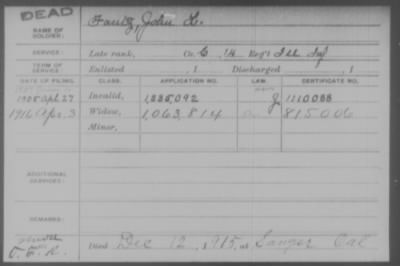 DEAD
NAME OF SOLDIER: Fautz, John L.
SERVICE: Late rank, Co. G, Reg't Ill Inf
TERM OF SERVICE: Enlisted , 1 Discharged , 1
DATE OF FILING. CLASS. APPLICATION NO. LAW. CERTIFICATE NO.
1905 Apl. 27 Invalid, 1,335,092 1110088
1916 Apr. 3 Widow, 1,063,814 815006
Minor,
ADDITIONAL SERVICES:
REMARKS:
Died Dec 12, 1915, at Sanger Cal